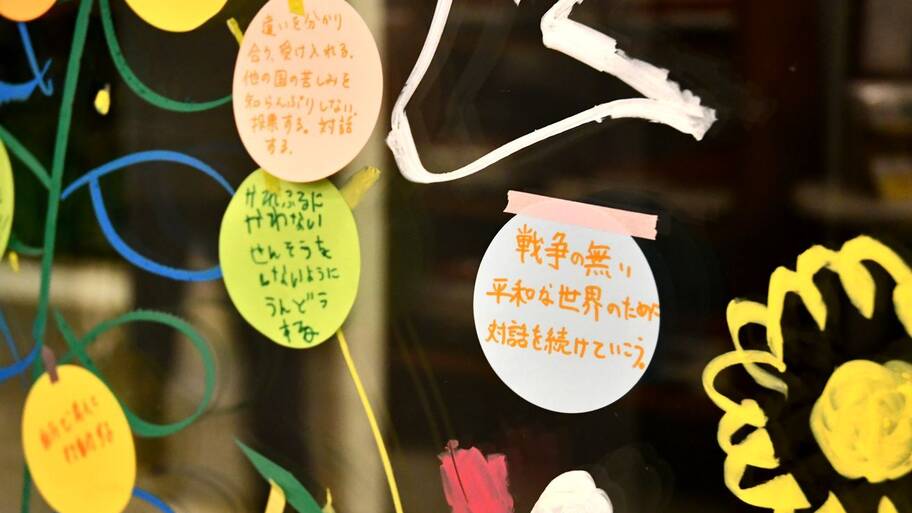 違いを分かり
合う、受け入れる。
他の国の苦しみを
知らんぷりしない。
投票する。対話
する。
せんそうを
しないように
うんどう
するね
戦争の無い
平和な世界のために
対話を続けていこう。